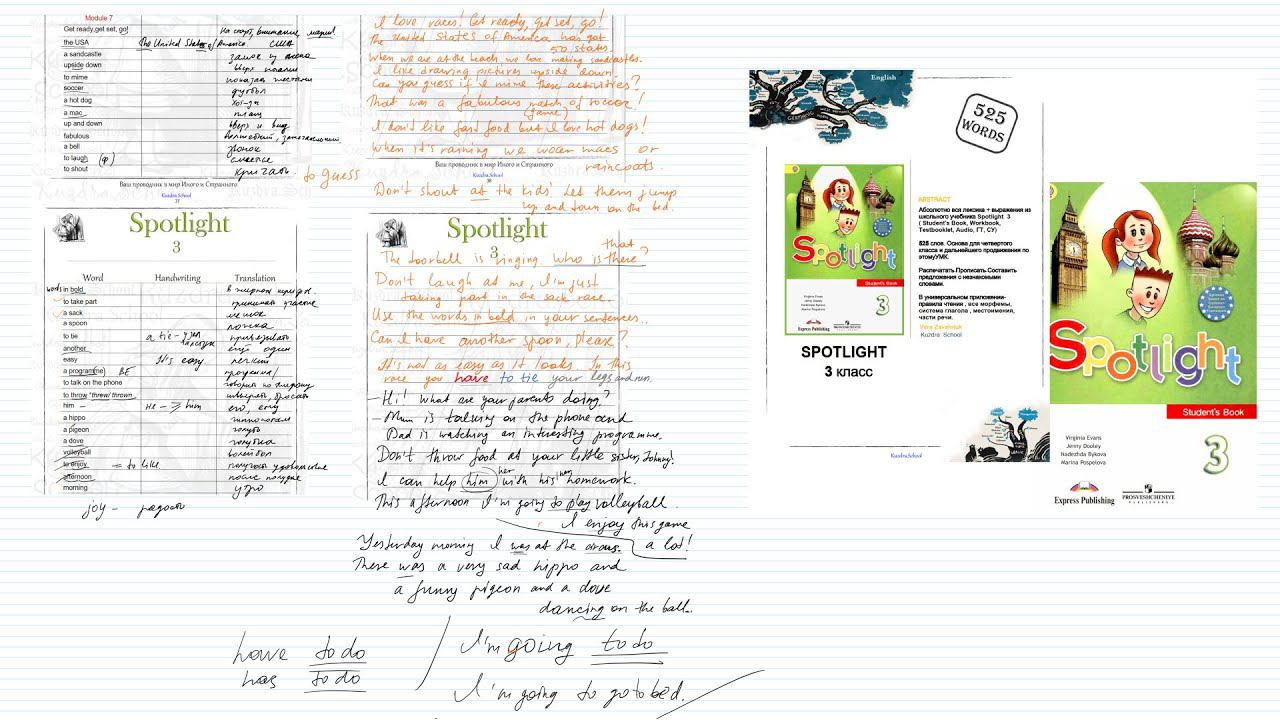 Module 7
Get ready,get set, go! На старт, внимание, марш!
the USA The United States of America США
a sandcastle замок из песка
upside down вверх ногами
to mime показать жестами
soccer футбол
a hot dog хот-дог
a mac плащ
up and down вверх и вниз
fabulous
a bell звонок
to laugh (ф) смеяться
to shout кричать
to guess
Ваш проводник в мир Иного и Странного
Kuzdra.School
37
I love races! Get ready, get set, go!
The United States of America has got
50 states.
When we are at the beach we love making sandcastles.
I like drawing pictures upside down.
Can you guess if I mime these activities?
That was a fabulous match of soccer!
(game)
I don't like fast food but I love hot dogs!
When it's raining we wear macs or
raincoats.
Ваш проводник в мир Иного и Странного
Kuzdra.School
38
Don't shout at the kids! Let them jump
up and down on the bed.
Spotlight
3
Word Handwriting Translation
words in bold
to take part принимать участие
a sack мешок
a spoon ложка
to tie a tie - галстук
another ещё один
easy It's easy легкий
a program(me) BE программа
to talk on the phone говорить по телефону
to throw/ threw/ thrown швырять, бросать
him – He -> him его, ему
a hippo гиппопотам
a pigeon голубь
a dove голубка
volleyball волейбол
to enjoy = to like получать удовольствие
afternoon после полудня
morning утро
joy – радость
Spotlight
3
that
The doorbell is ringing. Who is there?
Don't laugh at me, I'm just
taking part in the sack race.
Use the words in bold in your sentences..
Can I have another spoon, please?
It's not as easy as it looks. In this
race you have to tie your legs and run.
– Hi! What are your parents doing?
– Mum is talking on the phone and
Dad is watching an interesting programme.
Don't throw food at your little sister, Johnny!
her
I can help him with his homework.
This afternoon I'm going to play volleyball.
I enjoy this game
a lot!
Yesterday morning I was at the circus.
There was a very sad hippo and
a funny pigeon and a dove
dancing on the ball..
have to do
has to do
I'm going to do
I'm going to go to bed.
English
525
WORDS
Spotlight
Student's Book
3
Virginia Evans
Jenny Dooley
Nadezhda Bykova
Marina Pospelova
Express Publishing
PROSVESHCHENIYE
PUBLISHERS
SPOTLIGHT
3 КЛАСС
ABSTRACT
Абсолютно вся лексика + выражения из
школьного учебника Spotlight 3
( Student's Book, Workbook,
Testbooklet, Audio, ГТ, СУ)
525 слов. Основа для четвертого
класса и дальнейшего продвижения по
этомуУМК.
Распечатать Прописать Составить
предложения с незнакомыми
словами.
В универсальном приложении-
правила чтения , все морфемы,
система глагола , местоимения,
части речи.
Vera Zavalniuk
Kuzdra School
Kuzdra.School
Spotlight
Student's Book
3
Virginia Evans
Jenny Dooley
Nadezhda Bykova
Marina Pospelova
Express Publishing
PROSVESHCHENIYE
PUBLISHERS